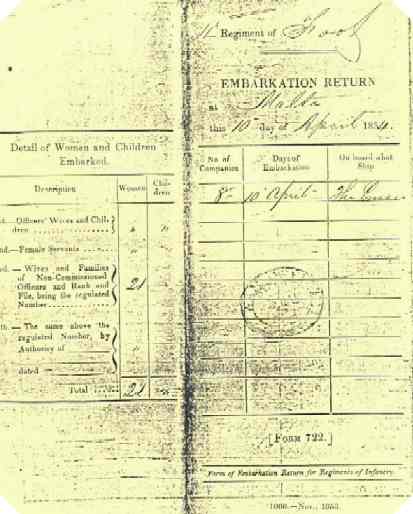 Detail of Women and Children
Embarked.
Description Women Chil-
dren
Officers' Wives and Chil-
dren
Female Servants
Wives and Families
of Non-Commissioned
Officers and Rank and
File, being the regulated
Number
The same above the
regulated Number, by
Authority of
dated
Total
Regiment of Foot
EMBARKATION RETURN
at Malta
this 10 day of April
No of
Companies
Days of
Embarkation
On board what
Ship
8 10 April The
[FORM 722.]
Form of Embarkation Return for Regiments of Infantry.
1000.—Nov., 1853.